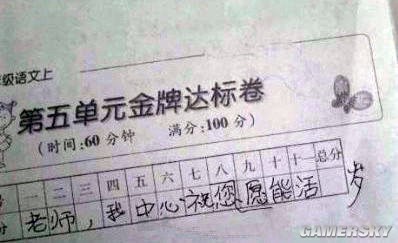 级语文上
第五单元金牌达标卷
(时间:60分钟 满分:100分)
一 二 三 四 五 六 七 八 九 十 十一 总分
分 老师,我中心祝您愿能活 岁
GAMERSKY